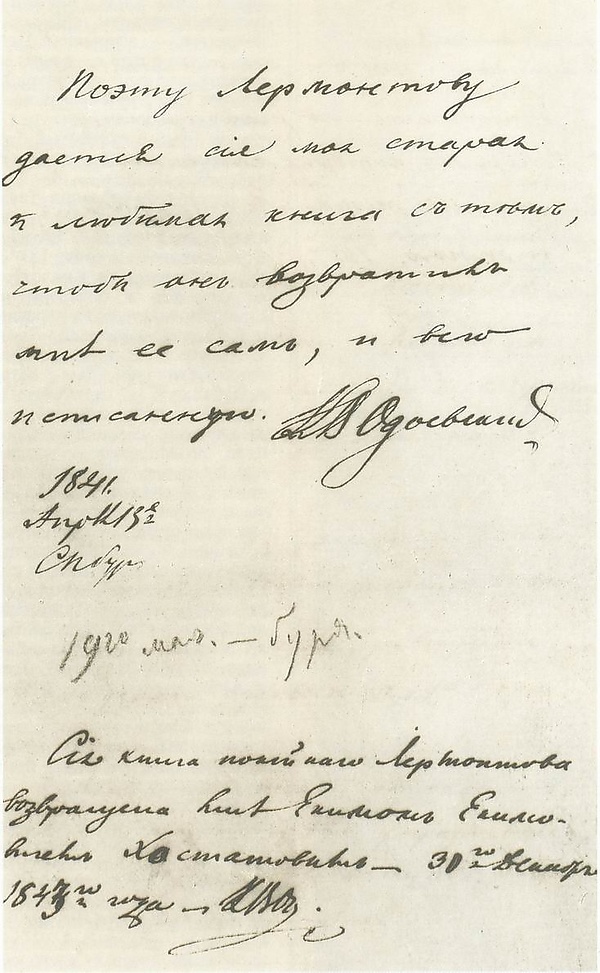 Поэту Лермонтову
дается сія моя старая
и любимая книга съ тѣмъ,
чтобы онъ возвратилъ
мнѣ ее самъ, и всю
исписанную. К В Одоевскій
1841.
Апрѣл 13 е
СПбург
19го мая. — буря.
Сія книга покойнаго Лермонтова
возвращена мнѣ Екимомъ Екимо-
вичемъ Хастатовымъ — 30го Декабр
1843го года — К В Од.